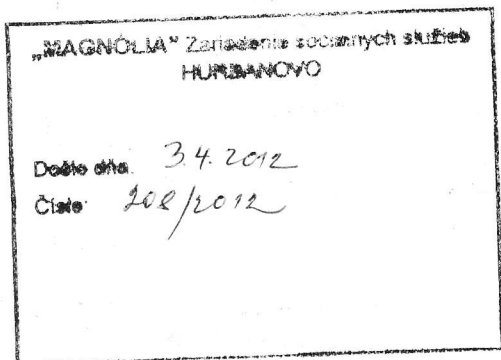 „MAGNÓLIA“ Zariadenie sociálnych služieb
HURBANOVO
Došlo dňa: 3.4.2012
Číslo: 208/2012